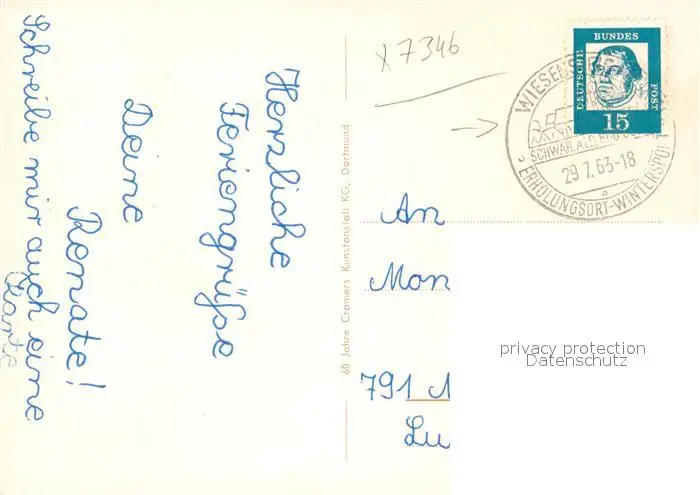 Herzliche
Feriengrüße
Deine
Renate!
Schreibe mir auch eine
Karte
60 Jahre Cramers Kunstanstalt KG, Dortmund
X 7346
DEUTSCHE
BUNDES
POST
15
SCHWÄB. ALB
29.7.63-18
ERHOLUNGSORT-WINTERSPORT
An
Mon
791
Lu
privacy protection
Datenschutz